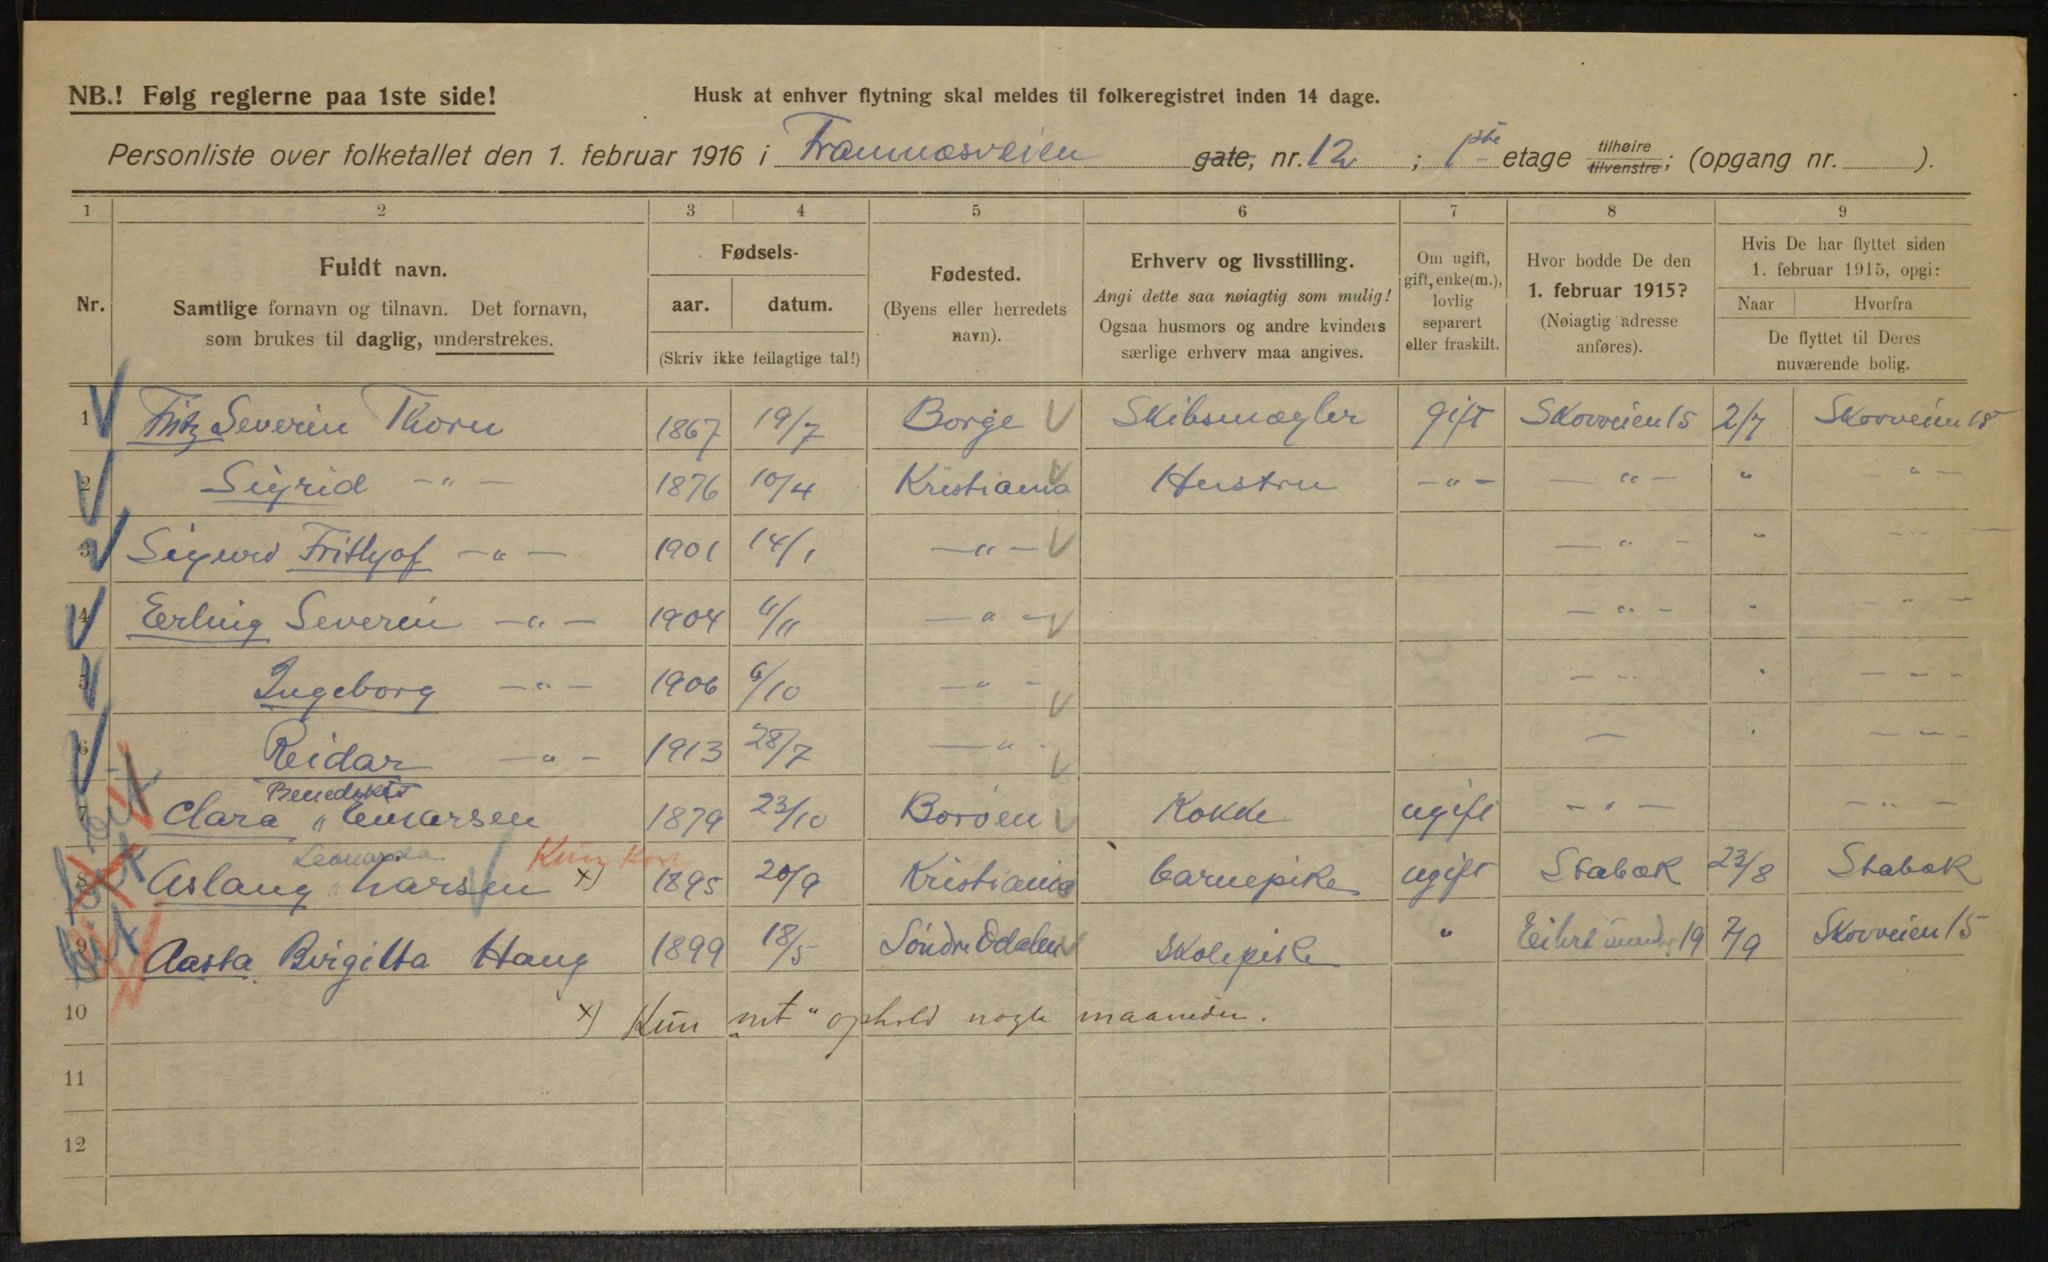 NB.! Følg reglerne paa 1ste side!
Husk at enhver flytning skal meldes til folkeregistret inden 14 dage.
Personliste over folketallet den 1. februar 1916 i Framnæsveien gate, nr. 12 ; 1ste etage tilhøire tilvenstre; (opgang nr. ).
1 2 3 4 5 6 7 8 9
Nr.
Fuldt navn.
Samtlige fornavn og tilnavn. Det fornavn,
som brukes til daglig, understrekes.
Fødsels-
aar. datum.
(Skriv ikke feilagtige tal!)
Fødested.
(Byens eller herredets
navn).
Erhverv og livsstilling.
Angi dette saa nøiagtig som mulig!
Ogsaa husmors og andre kvinders
særlige erhverv maa angives.
Om ugift,
gift, enke(m.),
lovlig
separert
eller fraskilt.
Hvor bodde De den
1. februar 1915?
(Nøiagtig adresse
anføres).
Hvis De har flyttet siden
1. februar 1915, opgi:
Naar Hvorfra
De flyttet til Deres
nuværende bolig.
1 Fritz Severin Thorn 1867 19/7 Borge Skibsmægler gift Skovveien 15 2/7 Skovveien 15
2 Sigrid -"- 1876 10/4 Kristiania Hustru -"- -"- " -"-
3 Sigurd Frithjof -"- 1901 14/1 -"- -"- "
4 Erling Severin -"- 1904 6/11 -"- -"- " -"-
5 Ingeborg -"- 1906 6/10 -"- -"- " -"-
6 Reidar -"- 1913 28/7 -"- — " -"-
Benedikte
7 Clara " Emarsen 1879 23/10 Kokke ugift -"- -"-
Leonarda
Kun
8 Aslaug Larsen x) 1895 20/9 Kristiania barnepike ugift Stabæk 23/8 Stabæk
9 Aasta Birgitta Haug 1899 18/5 Søndre Odalen Skolepike " 19 7/9 Skovveien 15
10 x) Kun mt " ophold nogle maaneder.
11
12